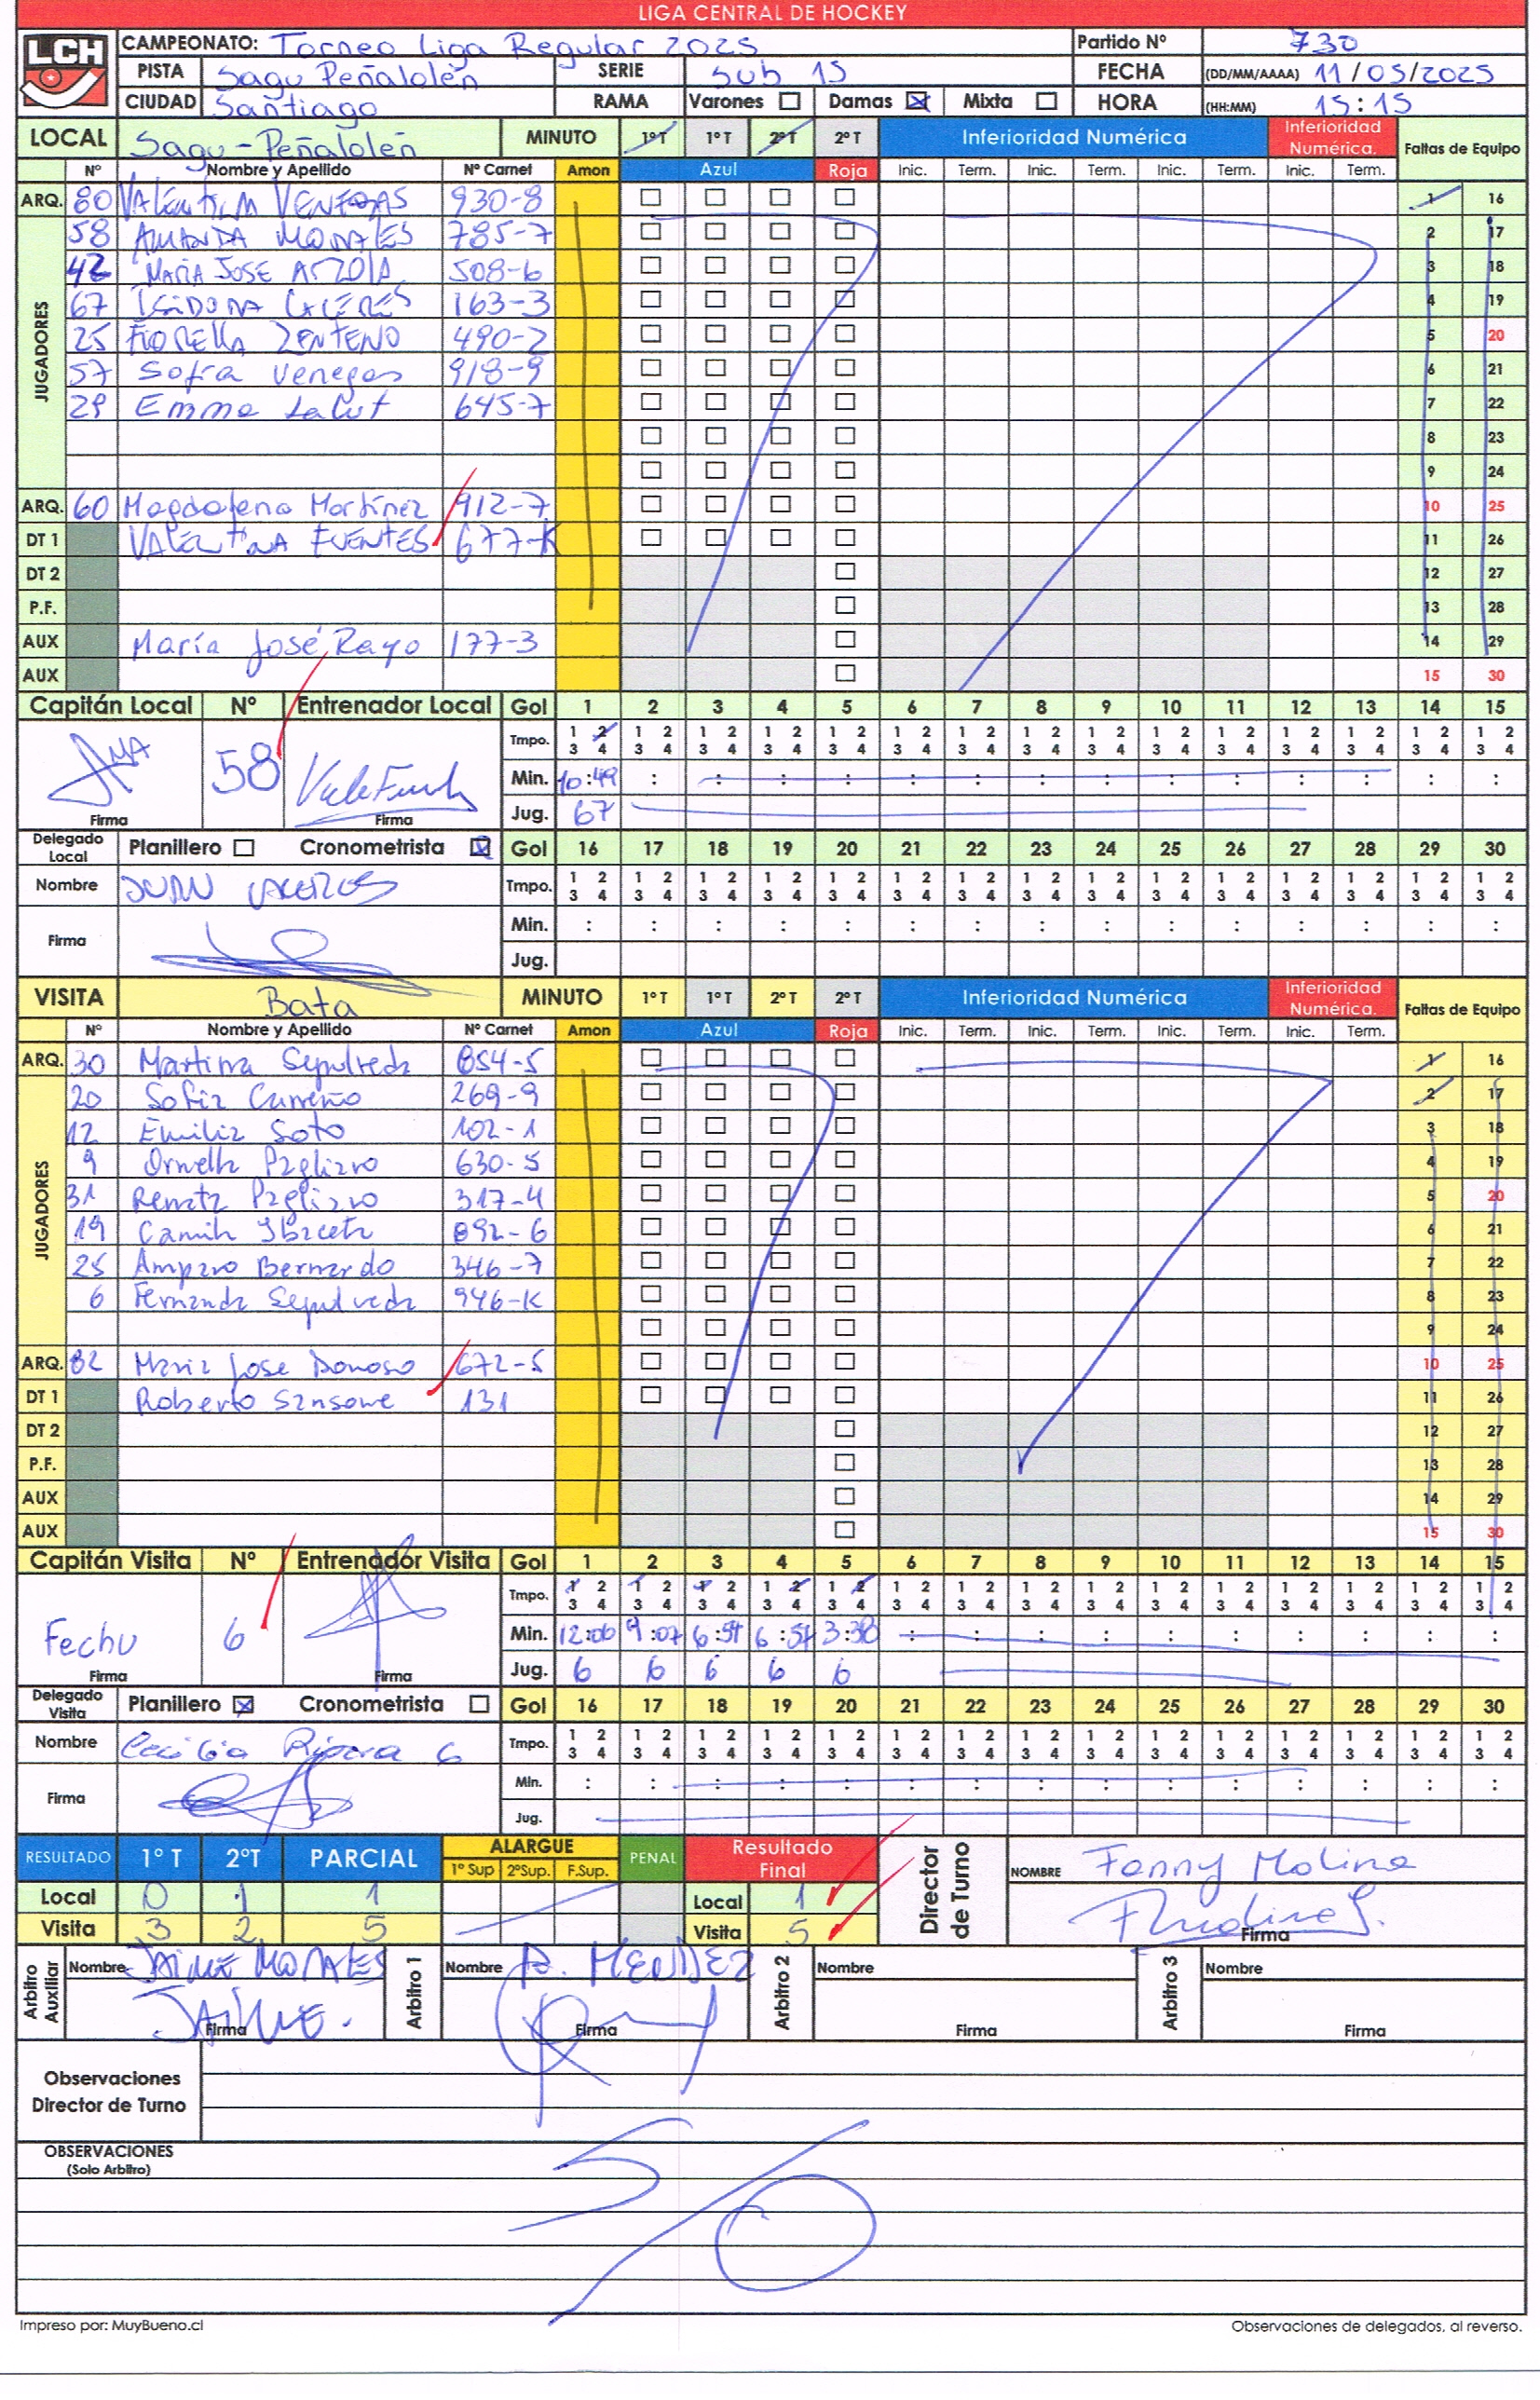 LIGA CENTRAL DE HOCKEY
LCH
CAMPEONATO: Torneo Liga Regular 2025 Partido Nº 730
PISTA Sagu Peñalolén SERIE Sub 15 FECHA (DD/MM/AAAA) 11/05/2025
CIUDAD Santiago RAMA Varones Damas Mixta HORA (HH:MM) 15:15
LOCAL Sagu-Peñalolén MINUTO 1º T 1º T 2º T 2º T Inferioridad Numérica Inferioridad Numérica. Faltas de Equipo
Nº Nombre y Apellido Nº Carnet Amon Azul Roja Inic. Term. Inic. Term. Inic. Term. Inic. Term.
ARQ. 80 VALENTINA VENEGAS 930-8 1 16
JUGADORES
58 AMANDA MORALES 785-7 2 17
42 MARIA JOSE 508-6 3 18
67 ISIDORA CACERES 163-3 4 19
25 FIORELLA ZENTENO 490-2 5 20
57 Sofía Venegas 918-9 6 21
29 Emma Lalut 645-7 7 22
8 23
9 24
ARQ. 60 Magdalena Martínez 912-7 10 25
DT 1 VALENTINA FUENTES 677-K 11 26
DT 2 12 27
P.F. 13 28
AUX María José Rayo 177-3 14 29
AUX 15 30
Capitán Local Nº Entrenador Local Gol 1 2 3 4 5 6 7 8 9 10 11 12 13 14 15
Tmpo. 1 2 3 4 1 2 3 4 1 2 3 4 1 2 3 4 1 2 3 4 1 2 3 4 1 2 3 4 1 2 3 4 1 2 3 4 1 2 3 4 1 2 3 4 1 2 3 4 1 2 3 4 1 2 3 4 1 2 3 4
58 Min. 10:49 : : : : : : : : : : : : : :
Firma Firma Jug. 67
Delegado Local Planillero Cronometrista Gol 16 17 18 19 20 21 22 23 24 25 26 27 28 29 30
Nombre JUAN CACERES Tmpo. 1 2 3 4 1 2 3 4 1 2 3 4 1 2 3 4 1 2 3 4 1 2 3 4 1 2 3 4 1 2 3 4 1 2 3 4 1 2 3 4 1 2 3 4 1 2 3 4 1 2 3 4 1 2 3 4 1 2 3 4
Firma Min. : : : : : : : : : : : : : : :
Jug.
VISITA Bata MINUTO 1º T 1º T 2º T 2º T Inferioridad Numérica Inferioridad Numérica. Faltas de Equipo
Nº Nombre y Apellido Nº Carnet Amon Azul Roja Inic. Term. Inic. Term. Inic. Term. Inic. Term.
ARQ. 30 Martina Sepulveda 854-5 1 16
JUGADORES
20 Sofia Carreño 269-9 2 17
12 Emilia Soto 102-1 3 18
9 Ornella Pagliaro 630-5 4 19
31 Renata Pagliaro 317-4 5 20
19 Camila Ibaceta 892-6 6 21
25 Amparo Bernardo 346-7 7 22
6 Fernanda Sepulveda 946-K 8 23
9 24
ARQ. 82 Maria Jose Donoso 672-5 10 25
DT 1 Roberto Sansone 131 11 26
DT 2 12 27
P.F. 13 28
AUX 14 29
AUX 15 30
Capitán Visita Nº Entrenador Visita Gol 1 2 3 4 5 6 7 8 9 10 11 12 13 14 15
Tmpo. 1 2 3 4 1 2 3 4 1 2 3 4 1 2 3 4 1 2 3 4 1 2 3 4 1 2 3 4 1 2 3 4 1 2 3 4 1 2 3 4 1 2 3 4 1 2 3 4 1 2 3 4 1 2 3 4 1 2 3 4
Fechu 6 Min. 12:00 9:07 6:54 6:54 3:38 : : : : : : : : : :
Firma Firma Jug. 6 6 6 6 6
Delegado Visita Planillero Cronometrista Gol 16 17 18 19 20 21 22 23 24 25 26 27 28 29 30
Nombre Cecilia G Tmpo. 1 2 3 4 1 2 3 4 1 2 3 4 1 2 3 4 1 2 3 4 1 2 3 4 1 2 3 4 1 2 3 4 1 2 3 4 1 2 3 4 1 2 3 4 1 2 3 4 1 2 3 4 1 2 3 4 1 2 3 4
Firma Min. : : : : : : : : : : : : : : :
Jug.
RESULTADO 1º T 2ºT PARCIAL ALARGUE 1º Sup 2ºSup. F.Sup. PENAL Resultado Final Director de Turno NOMBRE Fanny Molina
Local 0 1 1 Local 1
Visita 3 2 5 Visita 5 Firma
Arbitro Auxiliar Nombre JAIME MORALES Arbitro 1 Nombre A. MENDEZ Arbitro 2 Nombre Arbitro 3 Nombre
JAIME. Firma Firma Firma Firma
Observaciones
Director de Turno
OBSERVACIONES
(Solo Arbitro)
S/O
Impreso por: MuyBueno.cl Observaciones de delegados, al reverso.